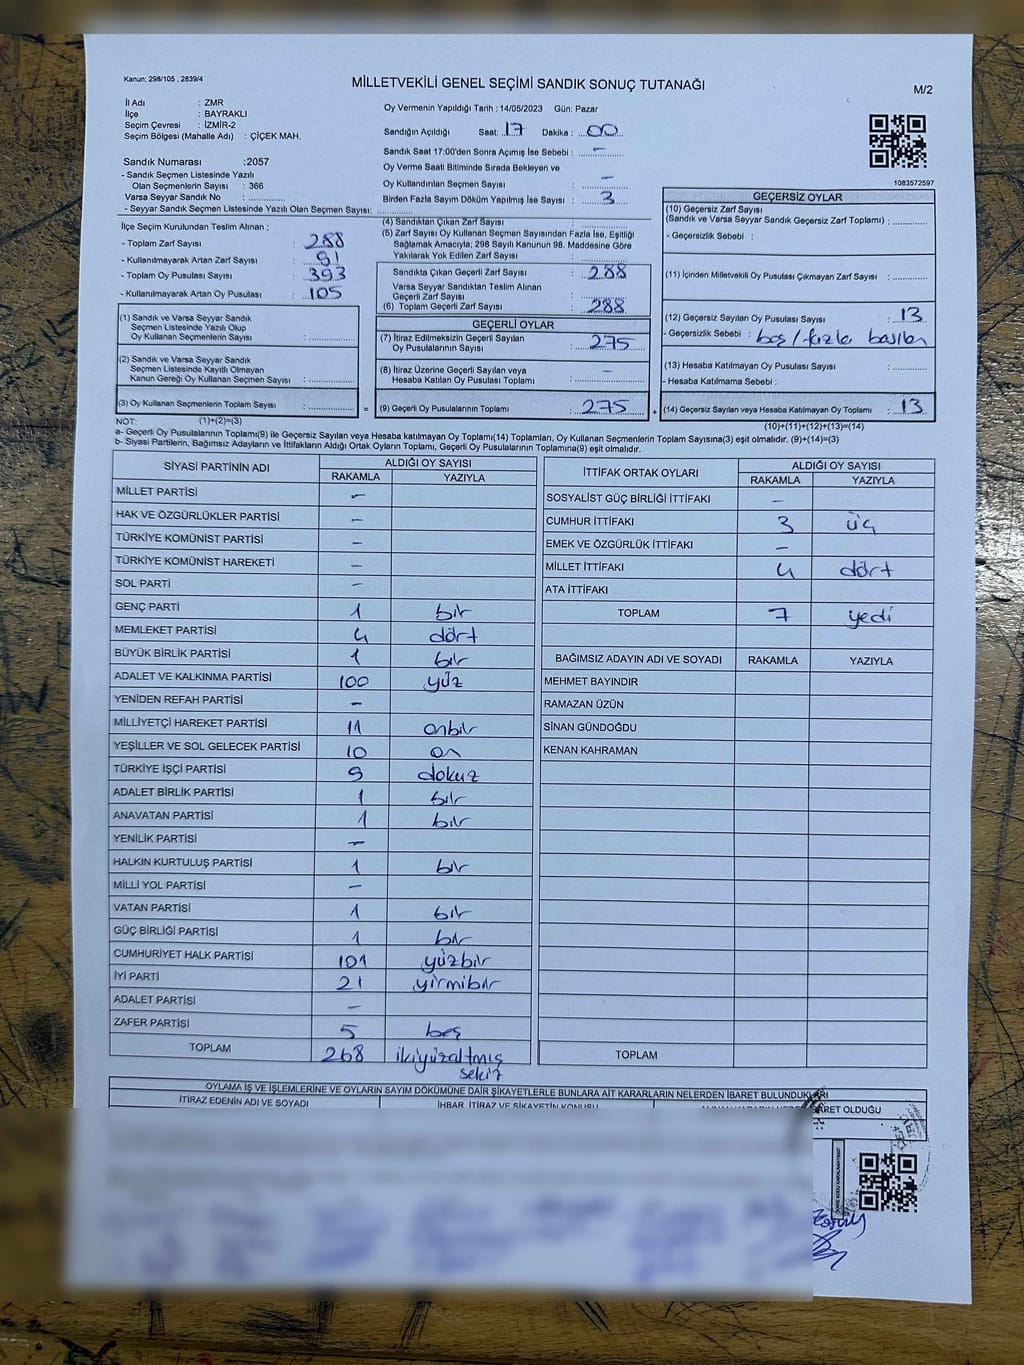 Kanun: 298/105 , 2839/4
MİLLETVEKİLİ GENEL SEÇİMİ SANDIK SONUÇ TUTANAĞI
M/2
İl Adı : ZMR
İlçe : BAYRAKLI
Seçim Çevresi : İZMİR-2
Seçim Bölgesi (Mahalle Adı) : ÇİÇEK MAH.
Sandık Numarası :2057
- Sandık Seçmen Listesinde Yazılı
Olan Seçmenlerin Sayısı : 366
Varsa Seyyar Sandık No : ............
- Seyyar Sandık Seçmen Listesinde Yazılı Olan Seçmen Sayısı: ............
Oy Vermenin Yapıldığı Tarih : 14/05/2023 Gün: Pazar
Sandığın Açıldığı Saat: 17 Dakika : 00
Sandık Saat 17:00'den Sonra Açımış İse Sebebi : –
Oy Verme Saati Bitiminde Sırada Bekleyen ve
Oy Kullandırılan Seçmen Sayısı : –
Birden Fazla Sayım Döküm Yapılmış İse Sayısı : 3
1083572597
İlçe Seçim Kurulundan Teslim Alınan ;
- Toplam Zarf Sayısı : 288
- Kullanılmayarak Artan Zarf Sayısı : 91
- Toplam Oy Pusulası Sayısı : 393
- Kullanılmayarak Artan Oy Pusulası : 105
(1) Sandık ve Varsa Seyyar Sandık
Seçmen Listesinde Yazılı Olup
Oy Kullanan Seçmenlerin Sayısı : ............
(2) Sandık ve Varsa Seyyar Sandık
Seçmen Listesinde Kayıtlı Olmayan
Kanun Gereği Oy Kullanan Seçmen Sayısı : ............
(3) Oy Kullanan Seçmenlerin Toplam Sayısı : ............
=
(4) Sandıktan Çıkan Zarf Sayısı : ............
(5) Zarf Sayısı Oy Kullanan Seçmen Sayısından Fazla İse, Eşitliği
Sağlamak Amacıyla; 298 Sayılı Kanunun 98. Maddesine Göre
Yakılarak Yok Edilen Zarf Sayısı : ............
Sandıkta Çıkan Geçerli Zarf Sayısı : 288
Varsa Seyyar Sandıktan Teslim Alınan
Geçerli Zarf Sayısı : ............
(6) Toplam Geçerli Zarf Sayısı : 288
GEÇERLİ OYLAR
(7) İtiraz Edilmeksizin Geçerli Sayılan
Oy Pusulalarının Sayısı : 275
(8) İtiraz Üzerine Geçerli Sayılan veya
Hesaba Katılan Oy Pusulası Toplamı : –
(9) Geçerli Oy Pusulalarının Toplamı : 275
+
GEÇERSİZ OYLAR
(10) Geçersiz Zarf Sayısı
(Sandık ve Varsa Seyyar Sandık Geçersiz Zarf Toplamı) : ............
- Geçersizlik Sebebi :
(11) İçinden Milletvekili Oy Pusulası Çıkmayan Zarf Sayısı : ............
(12) Geçersiz Sayılan Oy Pusulası Sayısı : 13
- Geçersizlik Sebebi : boş / fazla basılan
(13) Hesaba Katılmayan Oy Pusulası Sayısı : ............
- Hesaba Katılmama Sebebi :
(14) Geçersiz Sayılan veya Hesaba Katılmayan Oy Toplamı : 13
NOT: (1)+(2)=(3)
(10)+(11)+(12)+(13)=(14)
a- Geçerli Oy Pusulalarının Toplamı(9) ile Geçersiz Sayılan veya Hesaba katılmayan Oy Toplamı(14) Toplamları, Oy Kullanan Seçmenlerin Toplam Sayısına(3) eşit olmalıdır. (9)+(14)=(3)
b- Siyasi Partilerin, Bağımsız Adayların ve İttifakların Aldığı Ortak Oyların Toplamı, Geçerli Oy Pusulalarının Toplamına(9) eşit olmalıdır.
SİYASİ PARTİNİN ADI ALDIĞI OY SAYISI
RAKAMLA YAZIYLA
MİLLET PARTİSİ –
HAK VE ÖZGÜRLÜKLER PARTİSİ –
TÜRKİYE KOMÜNİST PARTİSİ –
TÜRKİYE KOMÜNİST HAREKETİ –
SOL PARTİ –
GENÇ PARTİ 1 bir
MEMLEKET PARTİSİ 4 dört
BÜYÜK BİRLİK PARTİSİ 1 bir
ADALET VE KALKINMA PARTİSİ 100 yüz
YENİDEN REFAH PARTİSİ –
MİLLİYETÇİ HAREKET PARTİSİ 11 onbir
YEŞİLLER VE SOL GELECEK PARTİSİ 10 on
TÜRKİYE İŞÇİ PARTİSİ 9 dokuz
ADALET BİRLİK PARTİSİ 1 bir
ANAVATAN PARTİSİ 1 bir
YENİLİK PARTİSİ –
HALKIN KURTULUŞ PARTİSİ 1 bir
MİLLİ YOL PARTİSİ –
VATAN PARTİSİ 1 bir
GÜÇ BİRLİĞİ PARTİSİ 1 bir
CUMHURİYET HALK PARTİSİ 101 yüzbir
İYİ PARTİ 21 yirmibir
ADALET PARTİSİ –
ZAFER PARTİSİ 5 beş
TOPLAM 268 ikiyüzaltmış
sekiz
İTTİFAK ORTAK OYLARI ALDIĞI OY SAYISI
RAKAMLA YAZIYLA
SOSYALİST GÜÇ BİRLİĞİ İTTİFAKI –
CUMHUR İTTİFAKI 3 üç
EMEK VE ÖZGÜRLÜK İTTİFAKI –
MİLLET İTTİFAKI 4 dört
ATA İTTİFAKI
TOPLAM 7 yedi
BAĞIMSIZ ADAYIN ADI VE SOYADI RAKAMLA YAZIYLA
MEHMET BAYINDIR
RAMAZAN ÜZÜN
SİNAN GÜNDOĞDU
KENAN KAHRAMAN
TOPLAM
OYLAMA İŞ VE İŞLEMLERİNE VE OYLARIN SAYIM DÖKÜMÜNE DAİR ŞİKAYETLERLE BUNLARA AİT KARARLARIN NELERDEN İBARET BULUNDUKLARI
İTİRAZ EDENİN ADI VE SOYADI İHBAR, İTİRAZ VE ŞİKAYETİN KONUSU OLDUĞU